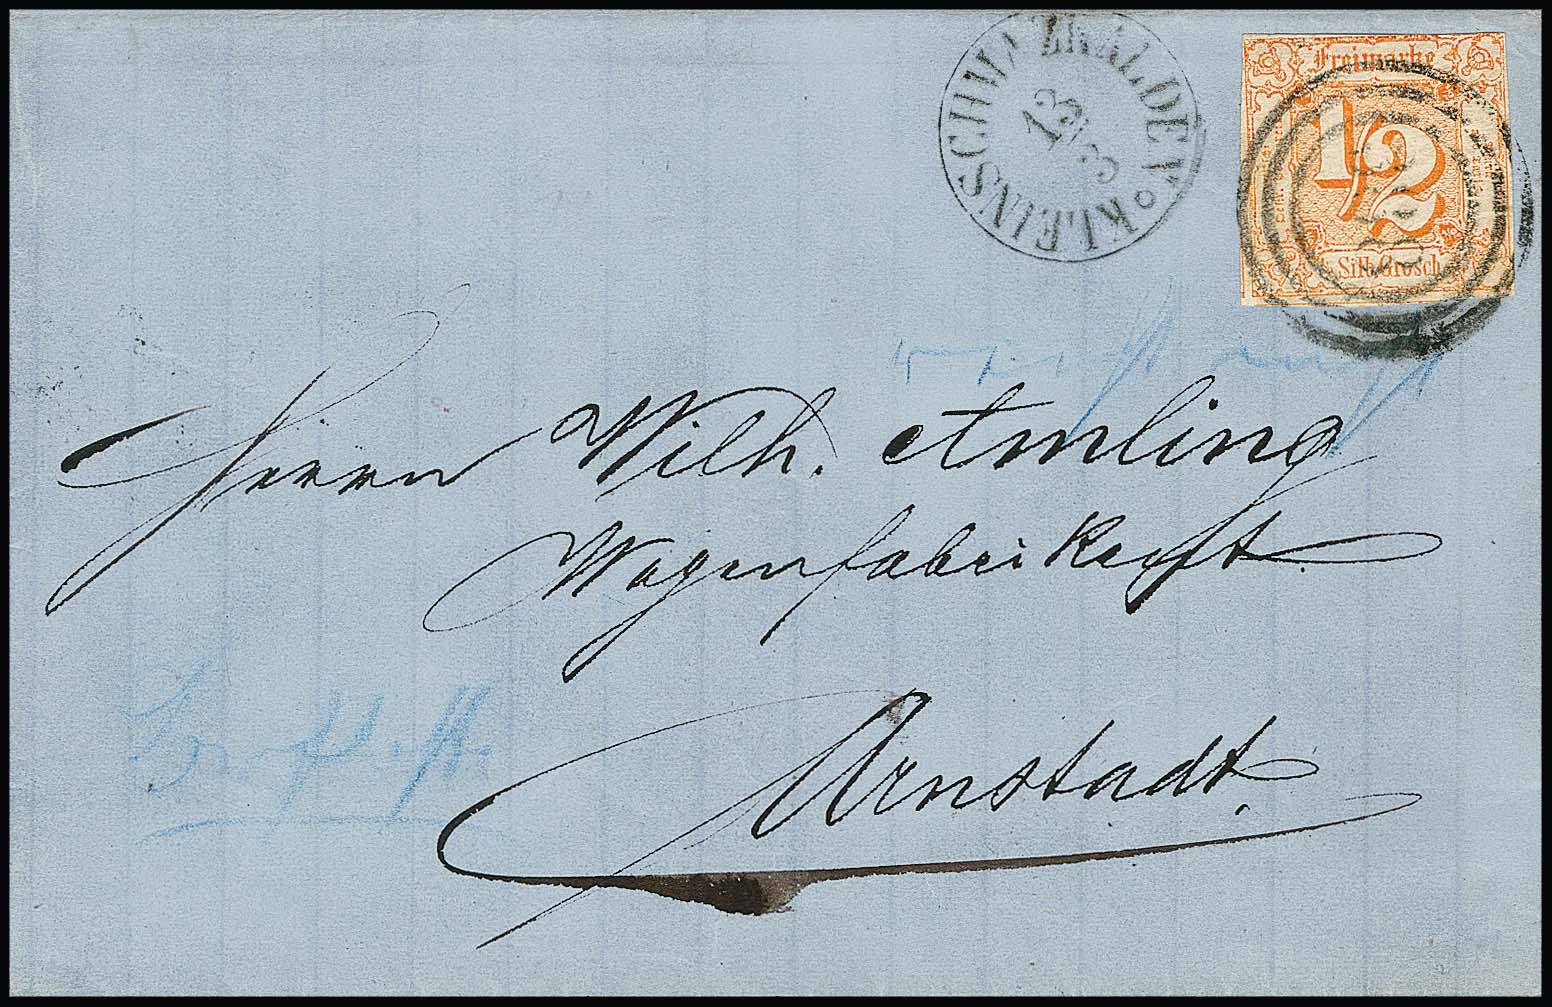 KLEINSCHMALKALDEN
13/3
Freimarke
1/2
Silb. Grosch.
Herrn Wilh. Amling
Wagenfabrikgesft.
Arnstadt.